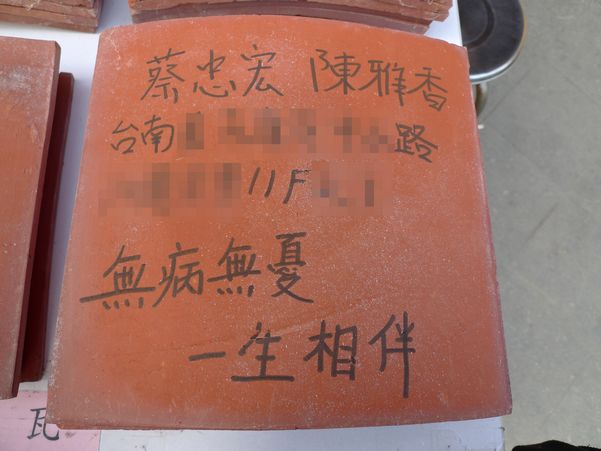 蔡忠宏 陳雅香
台南路
11F
無病無憂
一生相伴
瓦